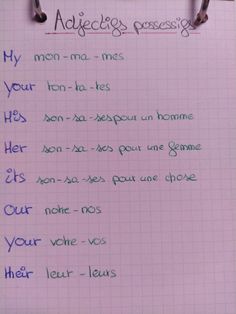 Adjectifs possessifs
My mon-ma-mes
your ton-ta-tes
His son-sa-ses pour un homme
Her son-sa-ses pour une femme
its son-sa-ses pour une chose
our notre-nos
your votre-vos
their leur-leurs